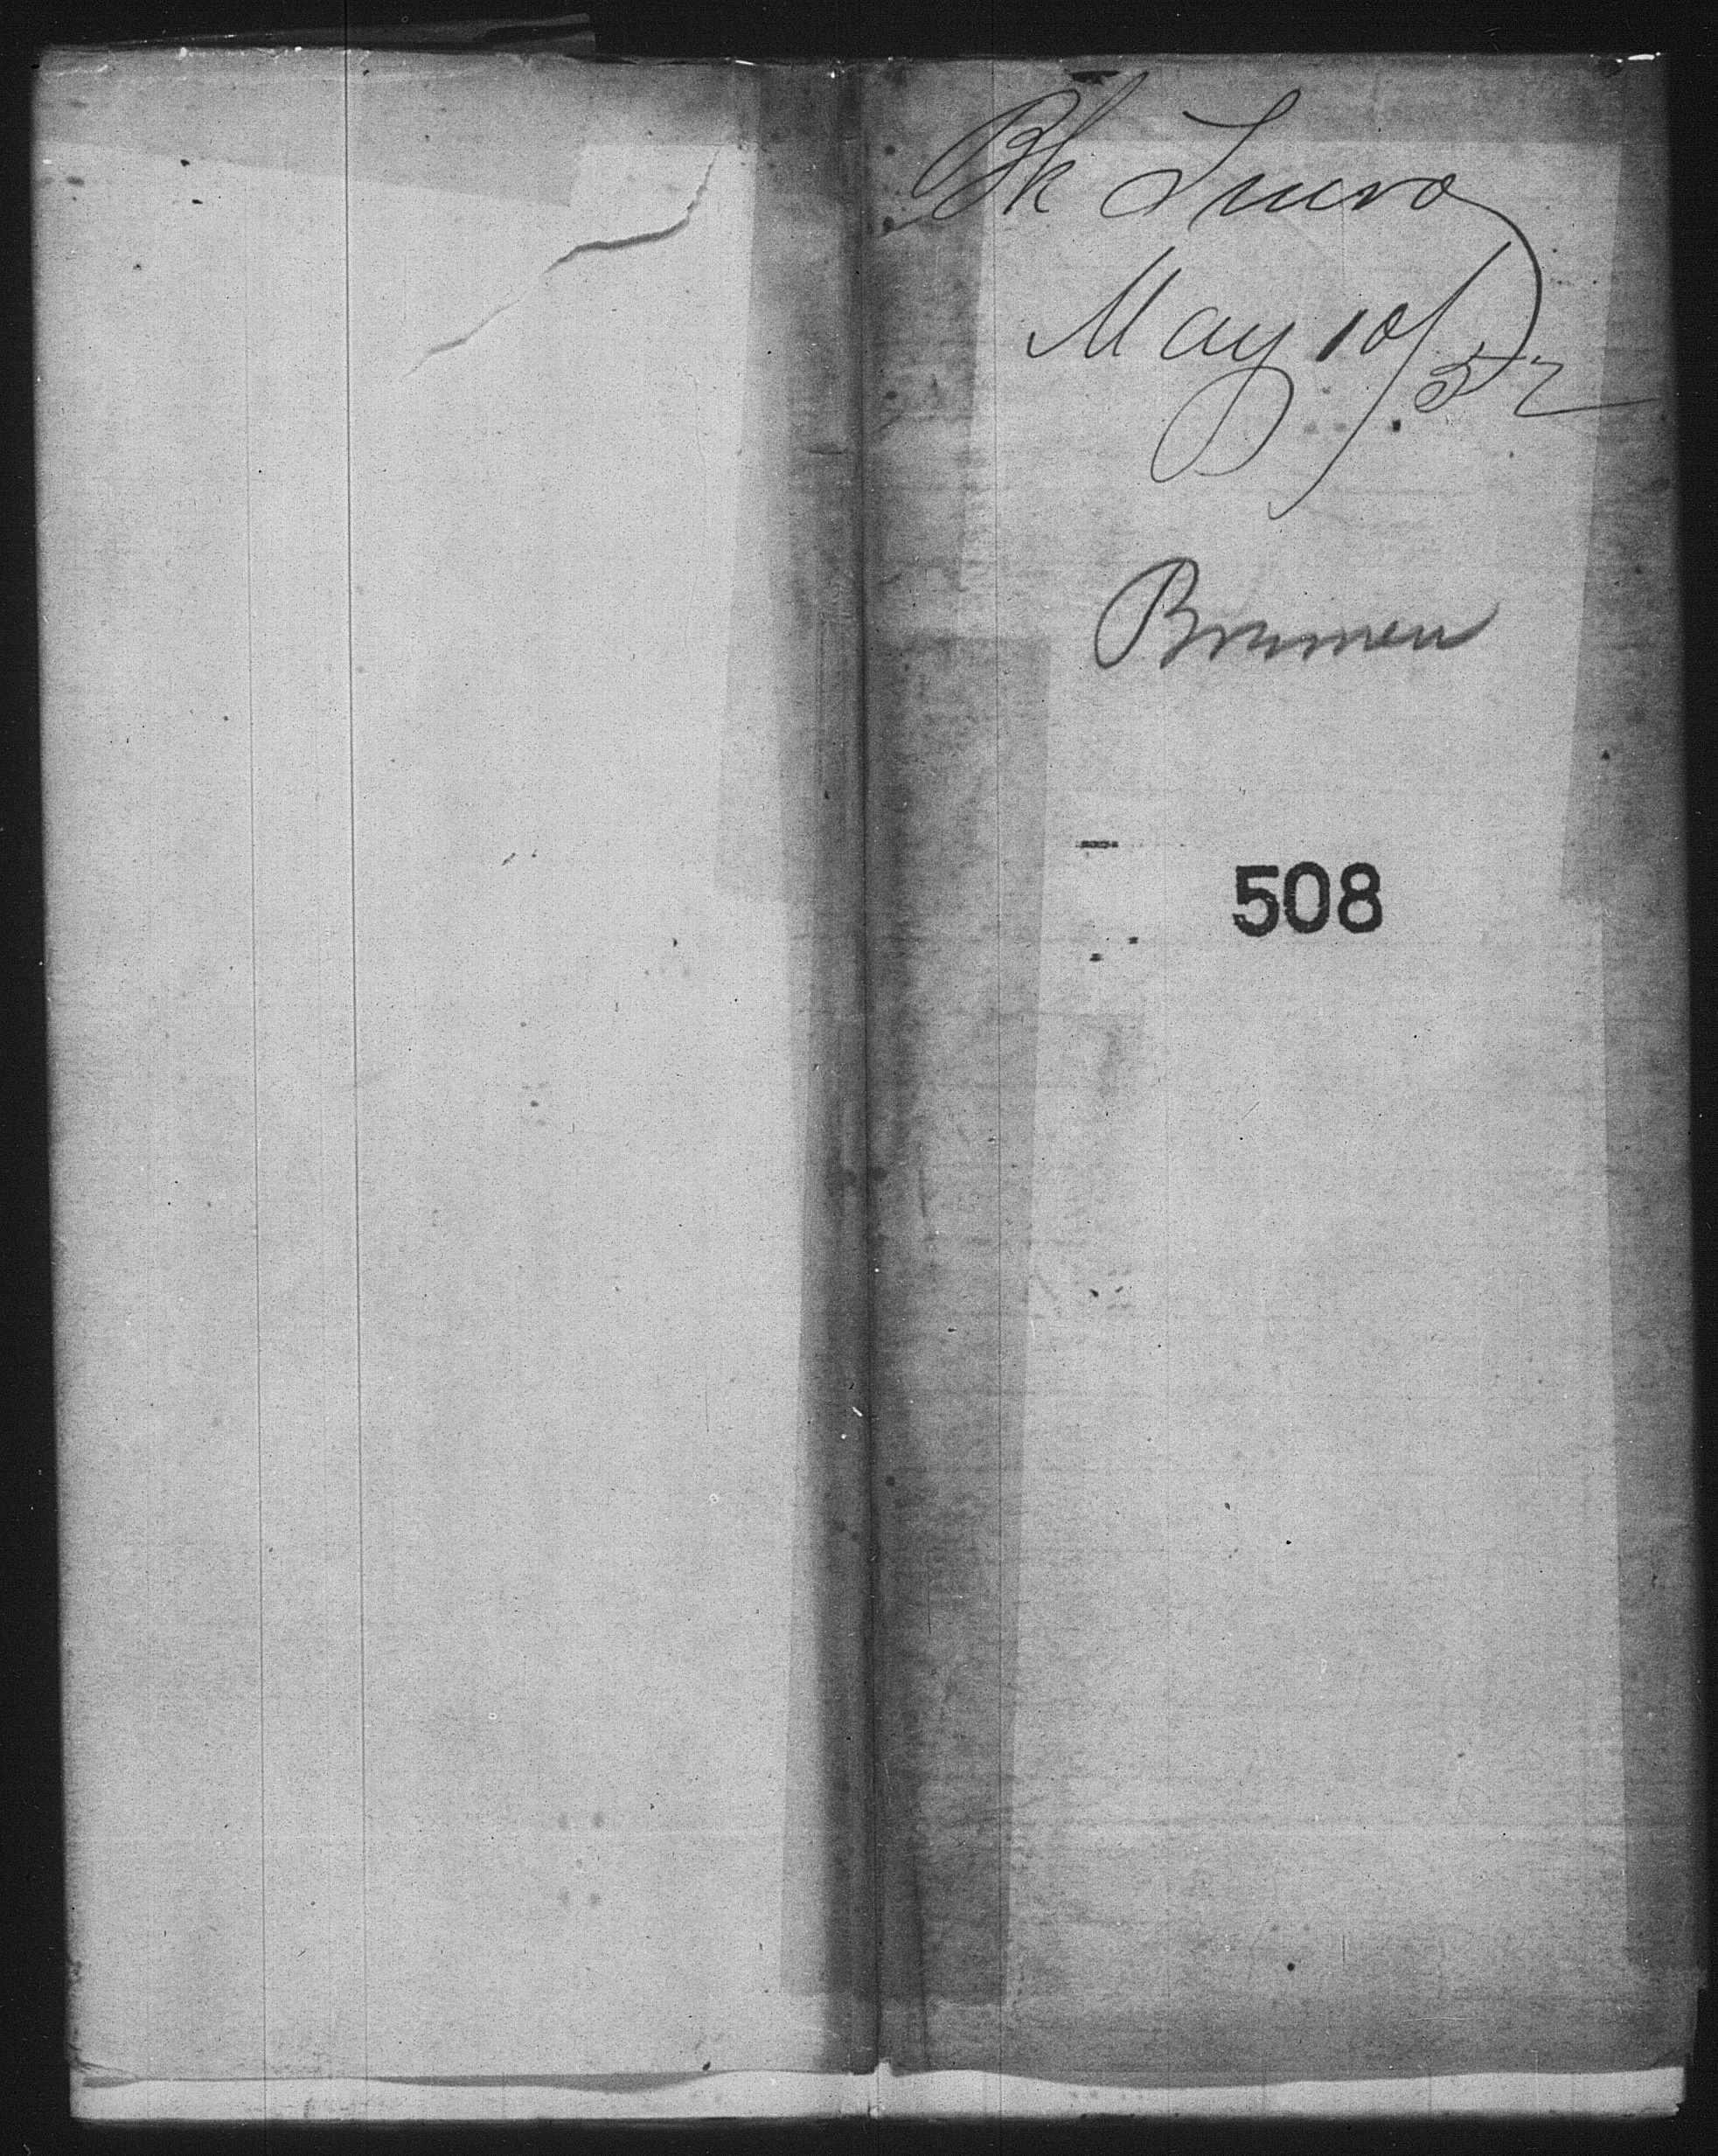 Bk Juno
May 10/52
Bremen
508